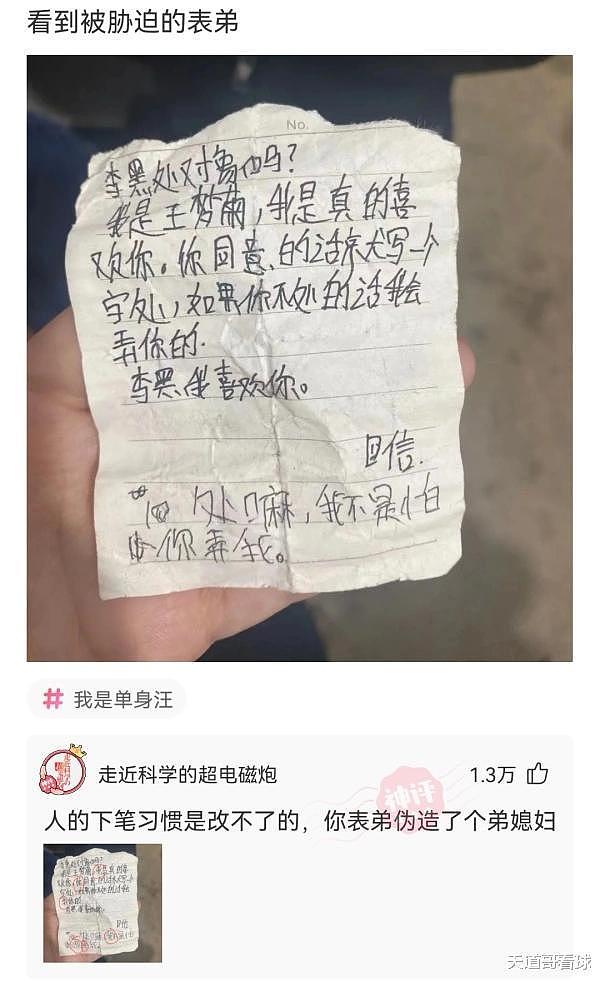 看到被胁迫的表弟
No.
李黑处对像吗?
我是王梦雨,我是真的喜
欢你。你同意的话就写一个
字处,如果你不处的话我会
弄你的.
李黑我喜欢你。
回信.
处嘛,我不是怕
你弄我。
# 我是单身汪
走近科学的超电磁炮
1.3万
神评
人的下笔习惯是改不了的,你表弟伪造了个弟媳妇
天道哥看球